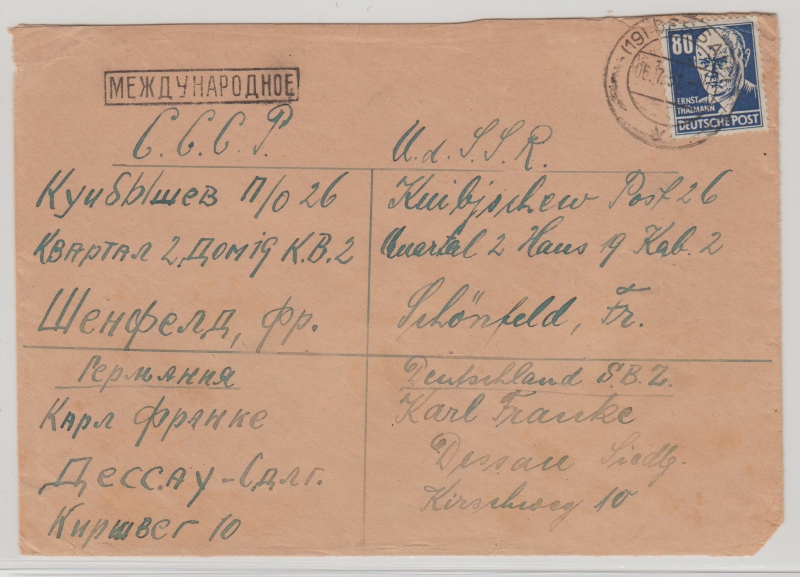 МЕЖДУНАРОДНОЕ
80
ERNST
THÄLMANN
DEUTSCHE POST
С.С.С.Р.
Куйбышев П/О 26
Квартал 2, Дом 19 К.В. 2
Шенфелд, Фр.
U.d.S.S.R.
Kuibjschew Post 26
Quartal 2 Haus 19 Kab. 2
Schönfeld, Fr.
Германия
Карл Франке
Дессау-Сдлг.
Киршвег 10
Deutschland S.B.Z.
Karl Franke
Dessau Siedlg.
Kirschweg 10